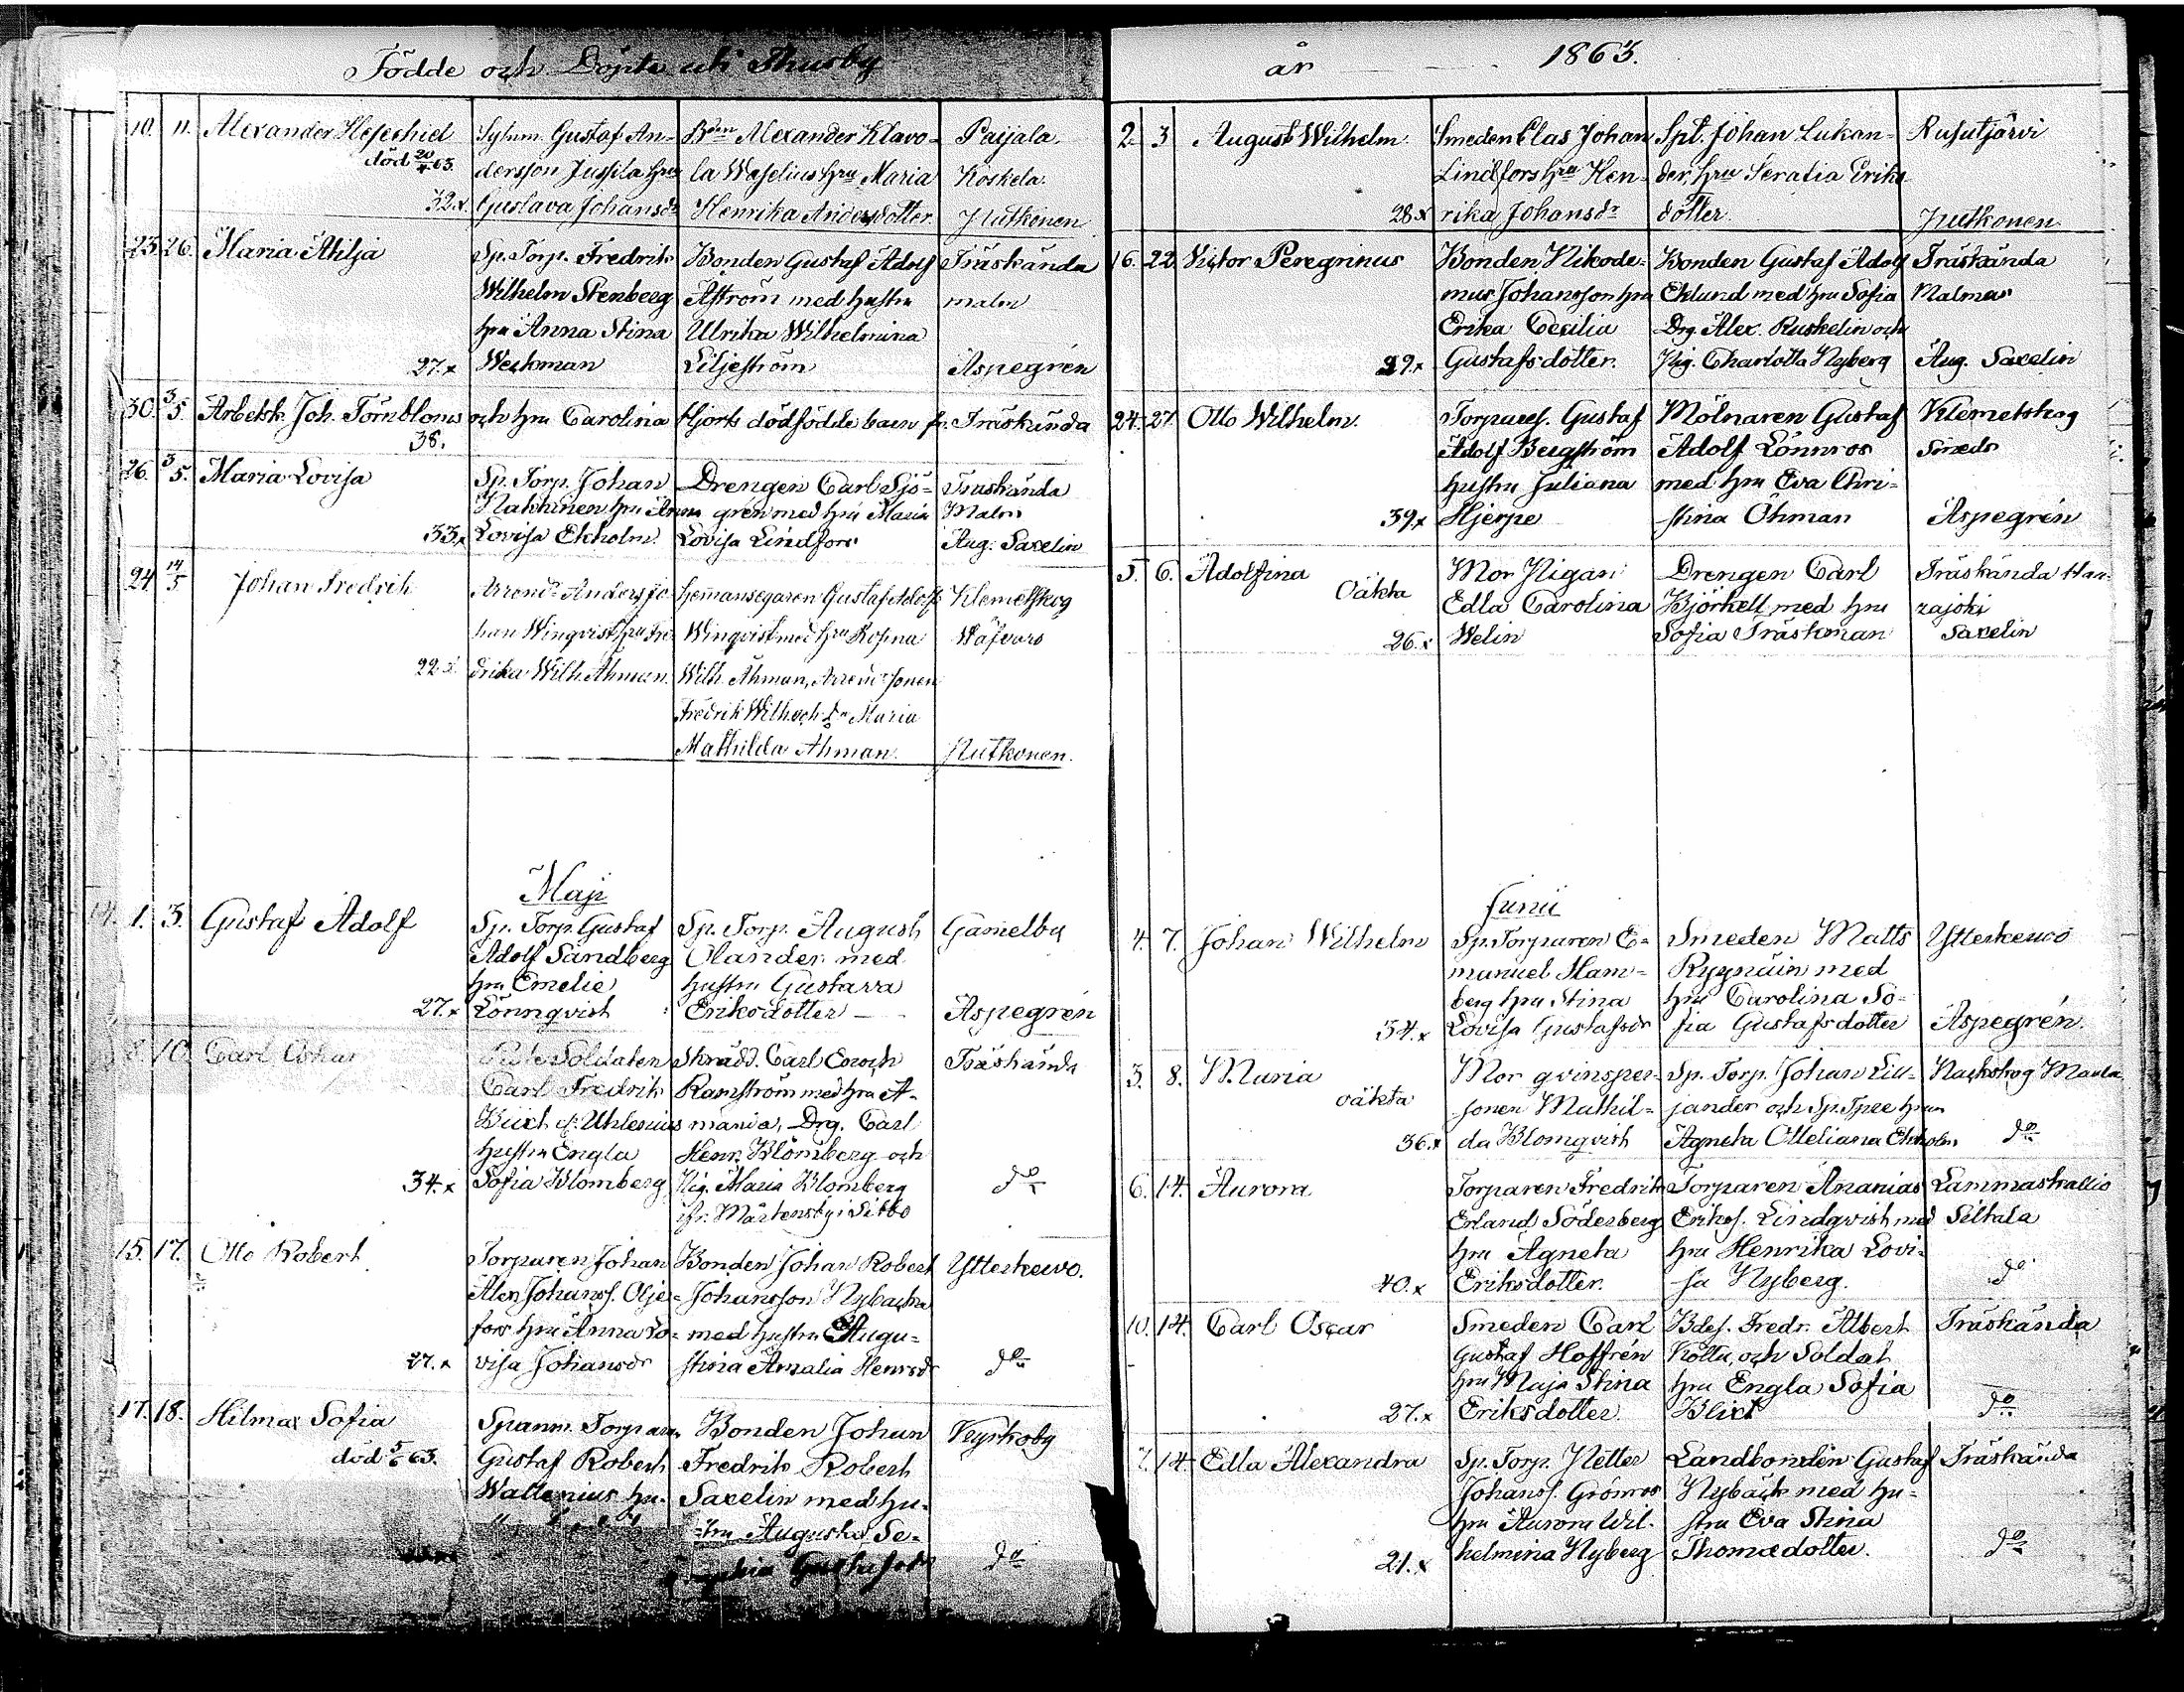 Födde och Döpte uti Thusby
10. 11. Alexander Hesechiel
död 20/4 63.
32.x
Sytnm. Gustaf An-
dersson Jussila hru
Gustava Johansdr
Bdn Alexander Klavo-
la Waselius hru Maria
Henrika Andersdotter
Paijala
Koskela.
Nutkonen
23 26. Maria Atilja
27.x
Sp. Torp. Fredrik
Wilhelm Stenberg
hru Anna Stina
Weckman
Bonden Gustaf Adolf
Åström med hustru
Ulrika Wilhelmina
Liljeström
Träskända
malm
Aspegrén
30. 3/5. Arbetsk. Joh. Törnbloms och hru Carolina Hjorts dödfödde barn fr. Träskända
38.
26. 3/5. Maria Lovisa
33.x
Sp. Torp. Johan
Nakkinen hru Anna
Lovisa Ekholm
Drengen Carl Sjö-
gren med hru Maria
Lovisa Lindfors
Träskända
Malm
Aug. Saxelin
24 14/5 Johan Fredrik
22.x
Arrendr Anders Jo-
han Winqvist hru Fre-
drika Wilh. Åhman.
Hemansegaren Gustaf Adolf
Winqvist med hru Rosina
Wilh. Åhman, Arrendr Sonen
Fredrik Wilh. och Dr Maria
Mathilda Åhman.
Klemetskog
Wäfvars
Nutkonen.
Maji
1. 3. Gustaf Adolf
27.x
Sp. Torp. Gustaf
Adolf Sandberg
hru Emelie
Lönnqvist
Sp. Torp. August
Olander med
hustru Gustava
Eriksdotter
Gamelby
Aspegrén
8. 10. Carl Oskar
34.x
Soldaten
Carl Fredrik
Blixt f. Uhlenius
hustru Engla
Sofia Blomberg
Skrädd. Carl Enoch
Ramström med hru A-
manda, Drg. Carl
Henr. Blomberg och
Pig. Maria Blomberg
ifr. Mårtensby i Sibbo
Träskända
do
15. 17. Otto Robert
27.x
Torparen Johan
Alex Johanss. Olje-
fors hru Anna Lo-
visa Johansdr
Bonden Johan Robert
Johansson Nybacka
med hustru Augu-
stina Amalia Henrsdr
Ytterkervo.
do
17. 18. Hilma Sofia
död 5/6 63.
Spannm. Torparen
Gustaf Robert
Wallenius hu-
Bonden Johan
Fredrik Robert
Saxelin med hu-
stru Augusta Se-
Gustafsdr
Neyskoby
do
år 1863.
2. 3 August Wilhelm
28.x
Smeden Clas Johan
Lindfors hru Hen-
rika Johansdr
Spt. Johan Lukan-
der, hru Serafia Eriks-
dotter
Rusutjärvi
Nutkonen
16. 22 Victor Peregrinus
29.x
Bonden Nikode-
mus Johansson hru
Erika Cecilia
Gustafsdotter.
Bonden Gustaf Adolf
Eklund med hru Sofia
Drg. Alex. Ruskelin och
Pig. Charlotta Nyberg
Träskända
Malmas
Aug. Saxelin
24. 27 Otto Wilhelm.
39.x
Torpares. Gustaf
Adolf Bergström
hustru Juliana
Hjerpe
Mölnaren Gustaf
Adolf Lönnros
med hru Eva Chri-
stina Öhman
Klemetskog
Smeds
Aspegrén
5. 6. Adolfina
Oäkta
26.x
Mor Pigan
Edla Carolina
Welin
Drengen Carl
Björkell med hru
Sofia Träskman
Träskända Han-
rajoki
Saxelin
Junii
4. 7. Johan Wilhelm
34.x
Sp. Torparen E-
manuel Ham-
berg hru Stina
Lovisa Gustafsdr
Smeden Matts
Rygnäin med
hru Carolina So-
fia Gustafsdotter
Ytterkervo
Aspegrén.
3. 8. Maria
oäkta
36.x
Mor qvinsper-
sonen Mathil-
da Blomqvist
Sp. Torp. Johan Lill-
jander och Sp. Tpre hrun
Agneta Otteliana Ekholm
Nackskog Maula
do
6. 14. Aurora
40.x
Torparen Fredrik
Erland Söderberg
hru Agneta
Eriksdotter.
Torparen Ananias
Eriks. Lindqvist med
hru Henrika Lovi-
sa Nyberg.
Lammaskallio
Seltala
do
10. 14. Carl Oscar
27.x
Smeden Carl
Gustaf Hoffrén
hru Maja Stina
Eriksdotter.
Bdes. Fredr. Albert
Kolla, och Soldat
hru Engla Sofia
Blixt
Träskända
do
7. 14. Edla Alexandra
21.x
Sp. Torp. Petter
Johanss. Grönros
hru Aurora Wil-
helmina Nyberg
Landbonden Gustaf
Nybäck med hu-
stru Eva Stina
Thomædotter.
Träskända
do